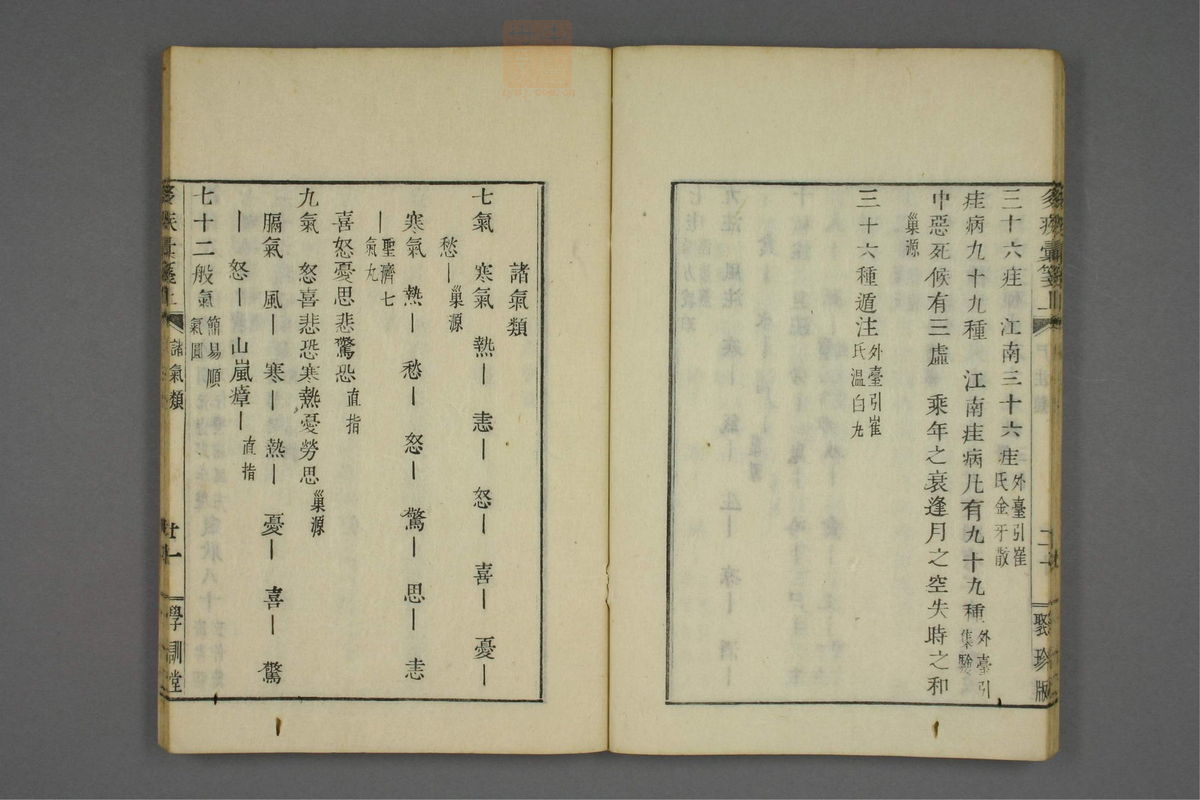 三十六疰　江南三十六疰外臺引崔氏金牙散
疰病九十九種　江南疰病凡有九十九種外臺引集驗
中惡死候有三虛　乘年之衰逢月之空失時之和
巢源
三十六種遁注外臺引崔氏溫白丸
聚珍版
諸氣類
七氣　寒氣　熱｜　恚｜　怒｜　喜｜　憂｜
愁｜巢源
寒氣　熱｜　愁｜　怒｜　驚｜　思｜　恚
｜聖濟七氣丸
喜怒憂思悲驚恐直指
九氣　怒喜悲恐寒熱憂勞思巢源
膈氣　風｜　寒｜　熱｜　憂｜　喜｜　驚
｜　怒｜　山嵐瘴｜直指
七十二般氣簡易順氣圓
諸氣類　廿一　學訓堂